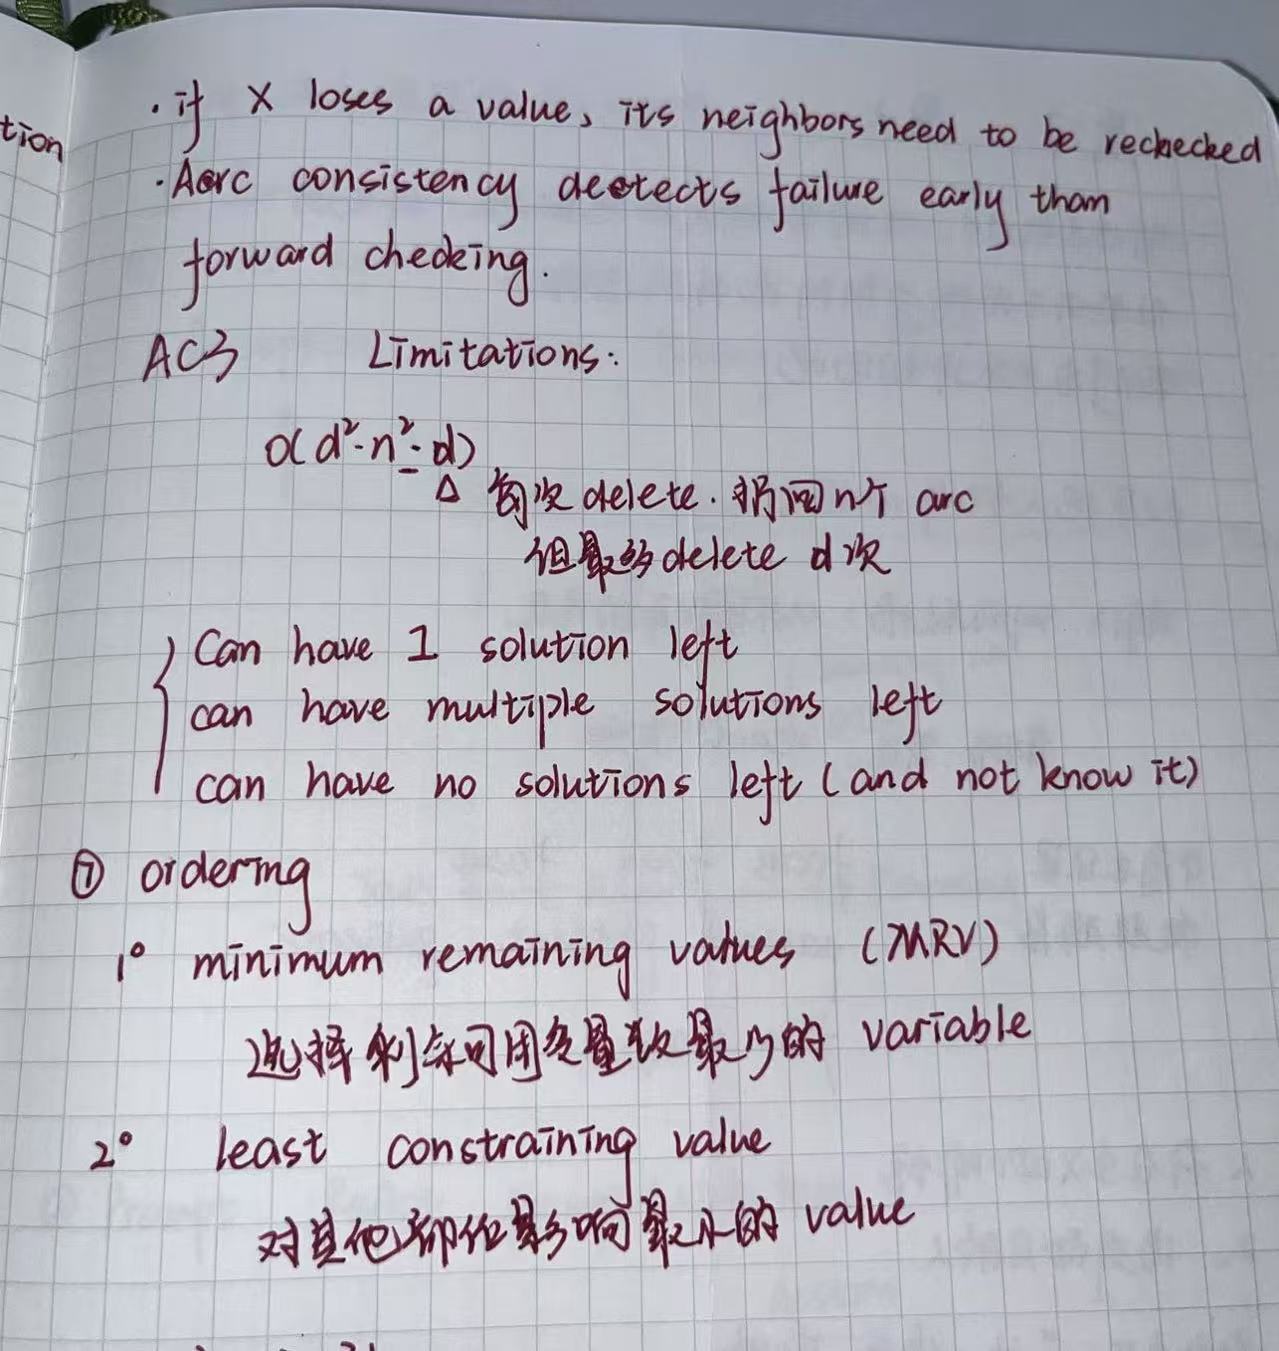 tion
· if X loses a value, its neighbors need to be rechecked
· Aarc consistency detects failure early than
forward checking.
AC3 Limitations:
O(d²·n²·d)
Δ 每次 delete. 扔回n个 arc
但最多delete d次
Can have 1 solution left
can have multiple solutions left
can have no solutions left (and not know it)
⑦ ordering
1° minimum remaining values (MRV)
选择剩余可用变量数最少的 variable
2° least constraining value
对其他部位影响最小的 value